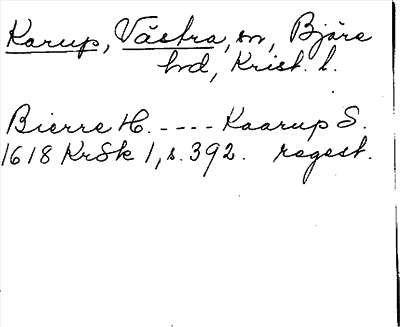 Karup, Västra, sn, Bjäre
hd, Krist. l.
Bierre H. ---- Kaarup S.
1618 KrSk 1, s. 392. regest.